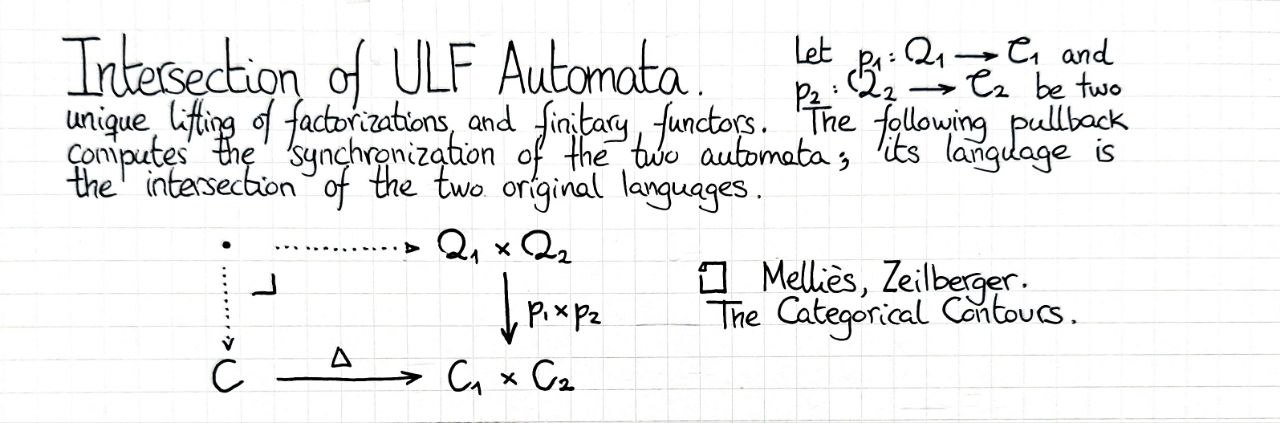 Intersection of ULF Automata. Let p₁ : Q₁ → C₁ and
p₂ : Q₂ → C₂ be two
unique lifting of factorizations, and finitary, functors. The following pullback
computes the synchronization of the two automata; its language is
the intersection of the two original languages.
· Q₁ × Q₂
p₁ × p₂
Melliès, Zeilberger.
The Categorical Contours.
C Δ C₁ × C₂